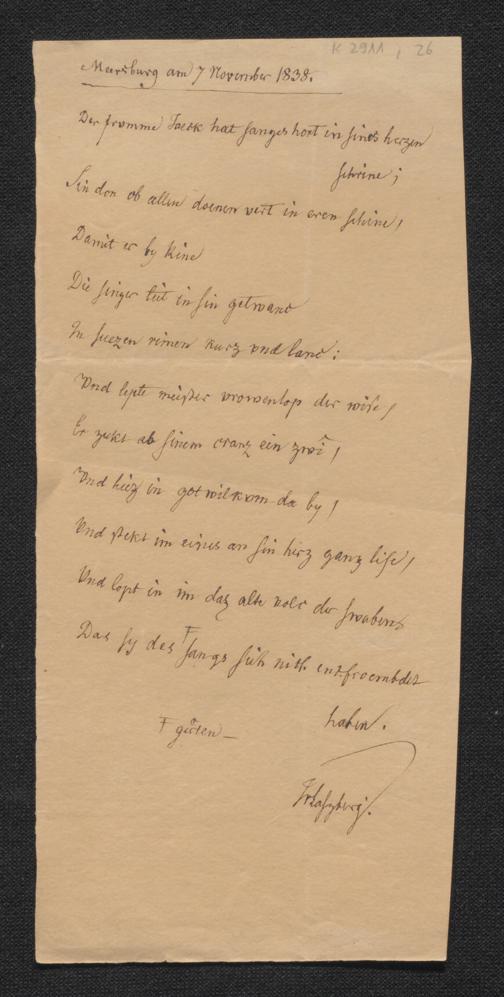 K 2911, 26
Meersburg am 7 November 1838.
Der fromme Joeok hat sanges hort in sines herzen
schrine;
Sin don ob allen doenen vert in eren schine,
Damit er by Rine
Die singer tüt in sin getwanc
In suezen rimen kurz vnd lanc:
Vnd lepte meister vrowenlop der wise,
Er zukt ab sinem cranz ein zwi,
Vnd hiez in got wilkom da by,
Vnd stekt im eines an sin herz ganz lise,
Vnd lopt in im daz alte volc der swaben,
Das sy des Ŧ sangs sich nith entfroembdet
haben.
Ŧ guten –
JvLaszberg.